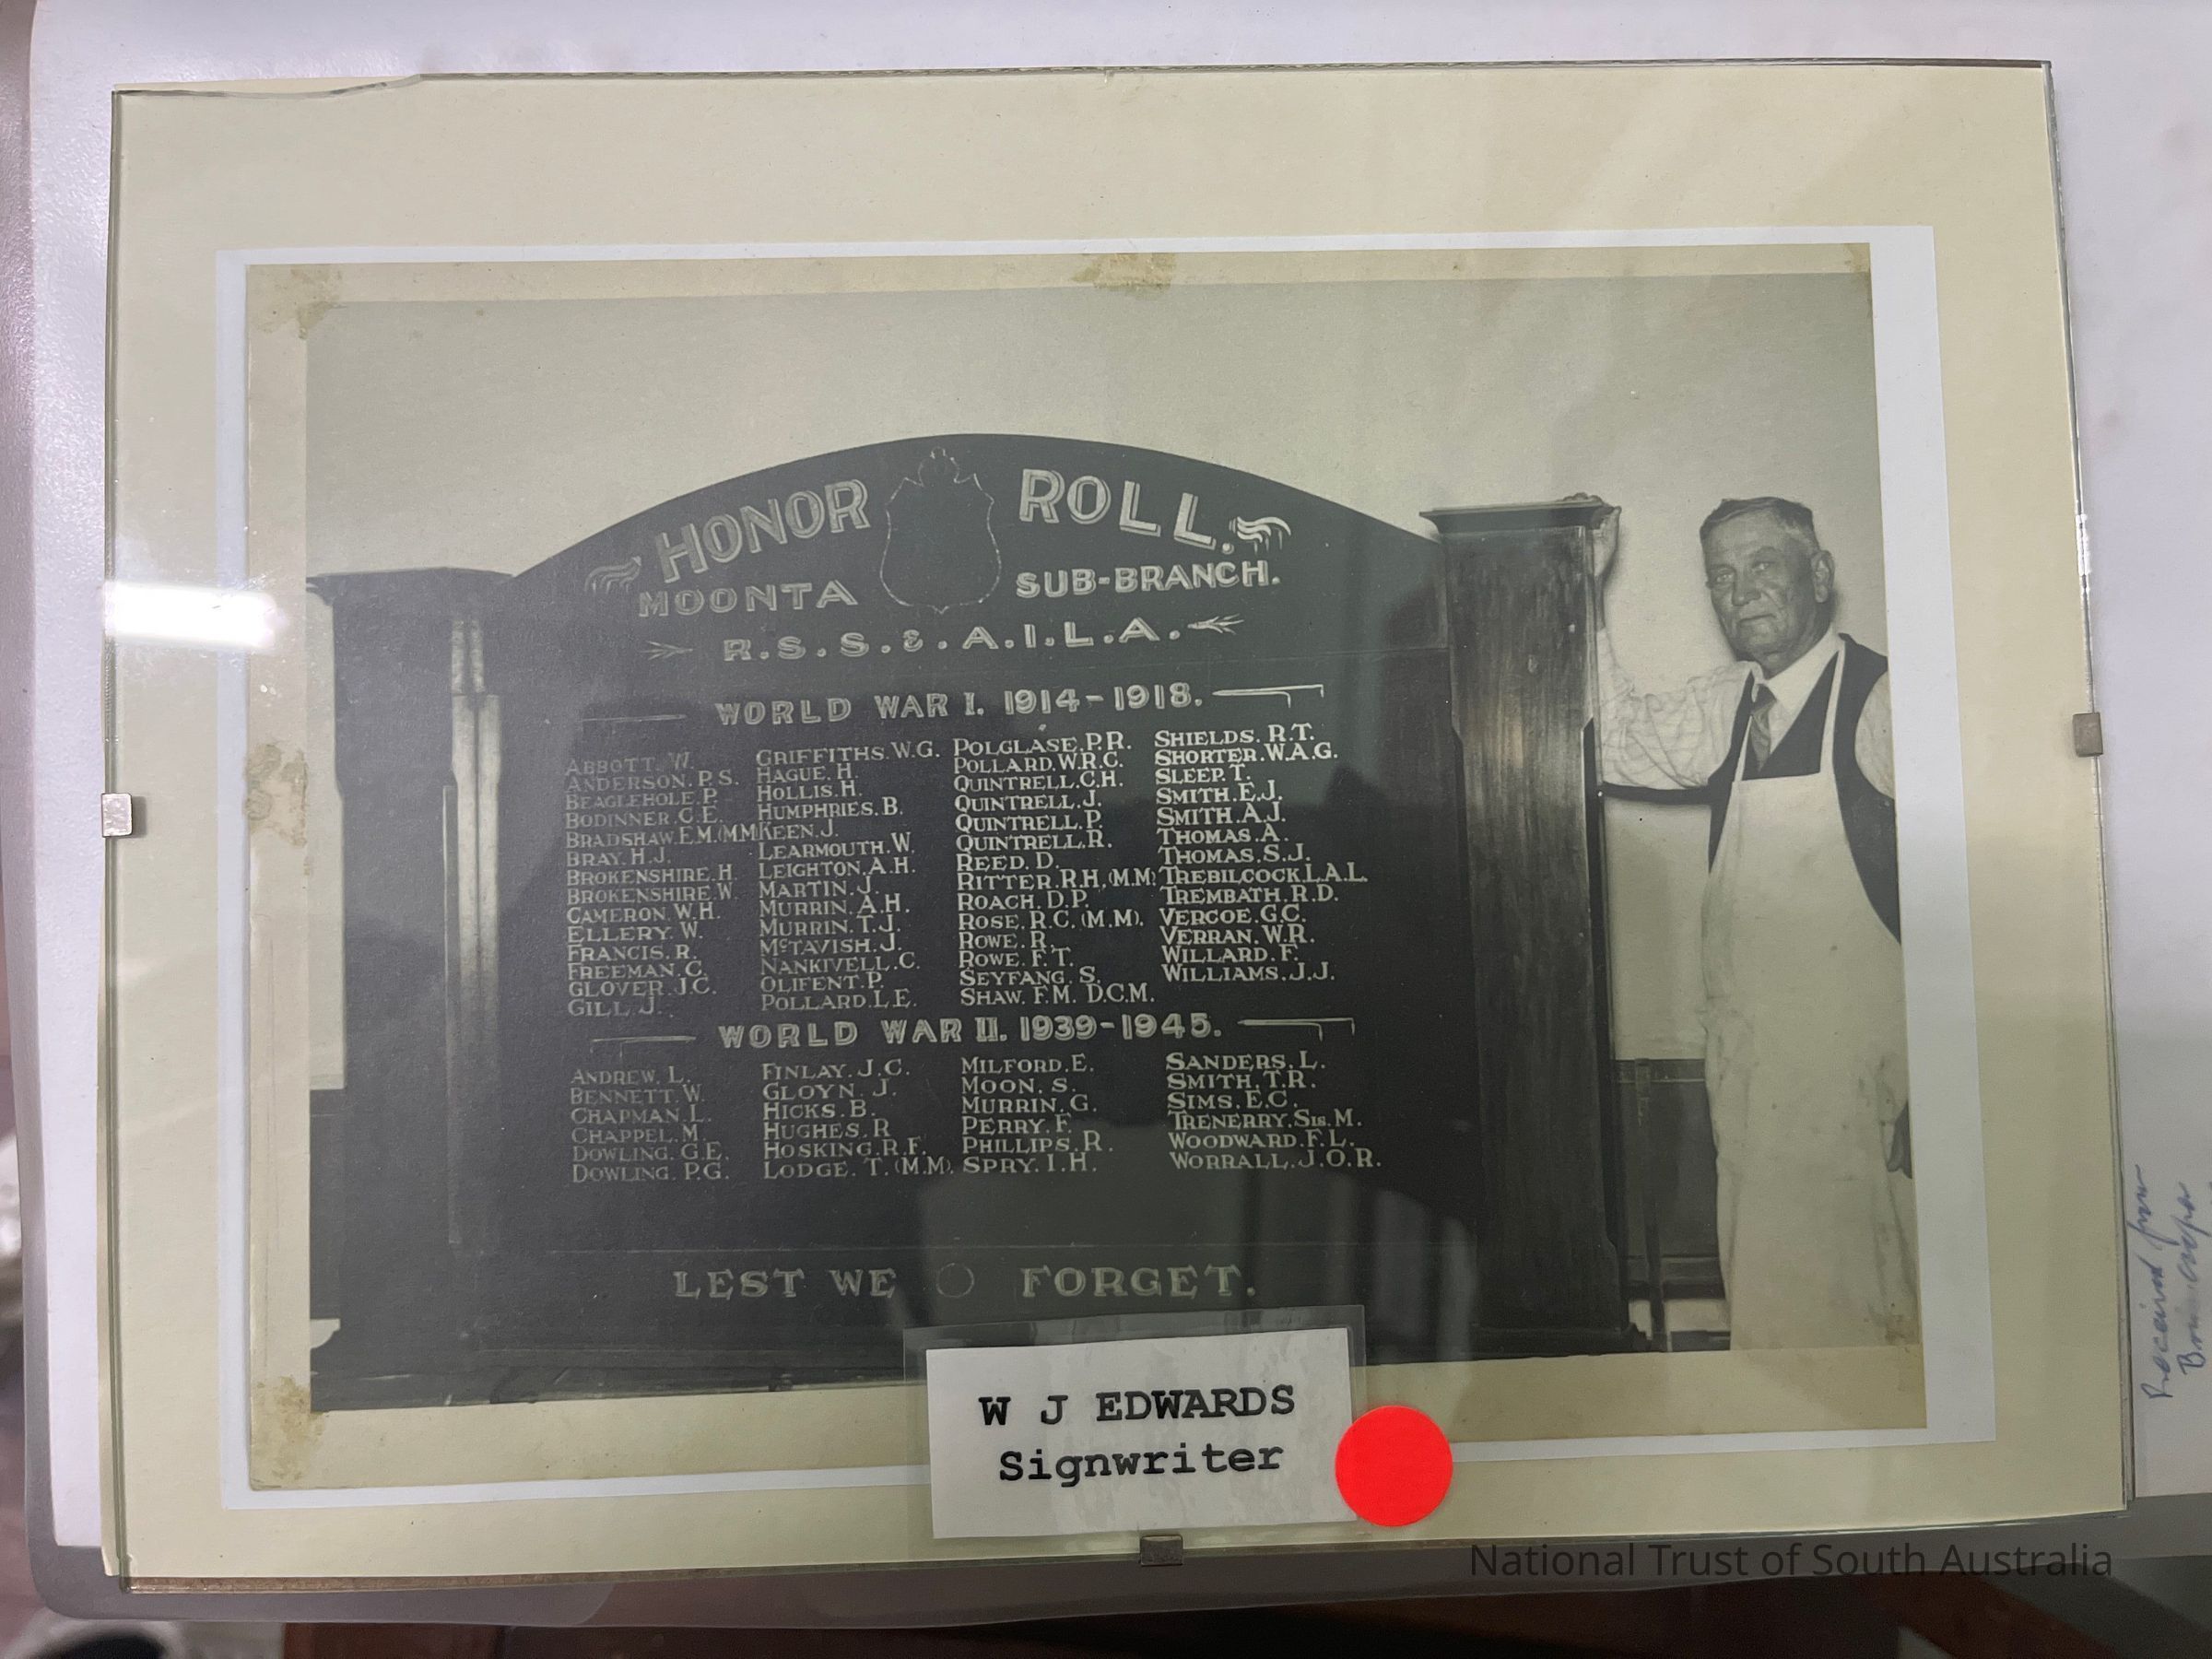 HONOR ROLL.
MOONTA SUB-BRANCH.
R.S.S.&.A.I.L.A.
WORLD WAR I. 1914-1918.
ABBOTT. W.
ANDERSON. P.S.
BEAGLEHOLE. P.
BODINNER. C.E.
BRADSHAW. E.M. (MM)
BRAY. H.J.
BROKENSHIRE. H.
BROKENSHIRE. W.
CAMERON. W.H.
ELLERY. W.
FRANCIS. R.
FREEMAN. C.
GLOVER. J.C.
GILL. J.
GRIFFITHS. W.G.
HAGUE. H.
HOLLIS. H.
HUMPHRIES. B.
KEEN. J.
LEARMOUTH. W.
LEIGHTON. A.H.
MARTIN. J.
MURRIN. A.H.
MURRIN. T.J.
McTAVISH. J.
NANKIVELL. C.
OLIFENT. P.
POLLARD. L.E.
POLGLASE. P.R.
POLLARD. W.R.C.
QUINTRELL. C.H.
QUINTRELL. J.
QUINTRELL. P.
QUINTRELL. R.
REED. D.
RITTER. R.H. (M.M)
ROACH. D.P.
ROSE. R.C. (M.M).
ROWE. R.
ROWE. F.T.
SEYFANG. S.
SHAW. F.M. D.C.M.
SHIELDS. R.T.
SHORTER. W.A.G.
SLEEP. T.
SMITH. E.J.
SMITH. A.J.
THOMAS. A.
THOMAS. S.J.
TREBILCOCK. L.A.L.
TREMBATH. R.D.
VERCOE. G.C.
VERRAN. W.R.
WILLARD. F.
WILLIAMS. J.J.
WORLD WAR II. 1939-1945.
ANDREW. L.
BENNETT. W.
CHAPMAN. L.
CHAPPEL. M.
DOWLING. G.E.
DOWLING. P.G.
FINLAY. J.C.
GLOYN. J.
HICKS. B.
HUGHES. R
HOSKING. R.F.
LODGE. T. (M.M).
MILFORD. E.
MOON. S.
MURRIN. G.
PERRY. F.
PHILLIPS. R.
SPRY. I.H.
SANDERS. L.
SMITH. T.R.
SIMS. E.C.
TRENERRY. SIS. M.
WOODWARD. F.L.
WORRALL. J.O.R.
LEST WE FORGET.
W J EDWARDS
Signwriter
Received from
National Trust of South Australia